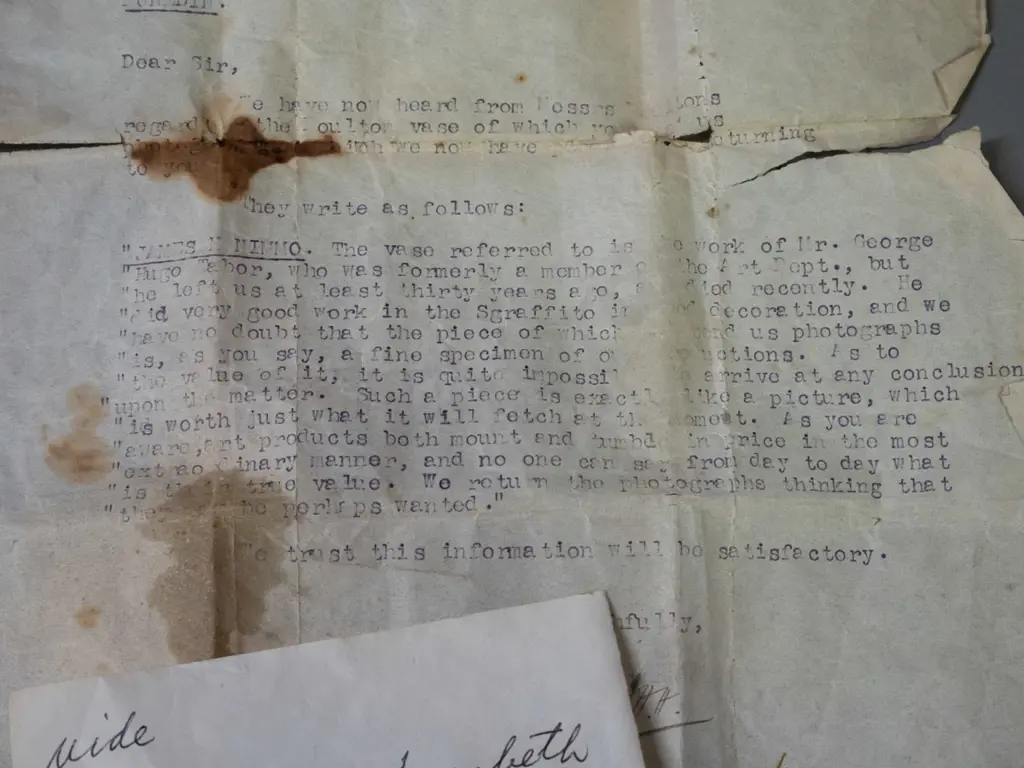 Dear Sir,
have now heard from Messrs
the vase of which us
we now have returning
to
They write as follows:
"JAMES M NIMMO. The vase referred to is work of Mr. George
"Hugo Tabor, who was formerly a member the Art Dept., but
"he left us at least thirty years ago, died recently. He
"did very good work in the Sgraffito decoration, and we
"have no doubt that the piece of which us photographs
"is, as you say, a fine specimen of As to
"the value of it, it is quite arrive at any conclusion
"upon the matter. Such a piece is like a picture, which
"is worth just what it will fetch at moment. As you are
"aware, art products both mount and in price in the most
"extraordinary manner, and no one can say from day to day what
"is true value. We return the photographs thinking that
be perhaps wanted."
trust this information will be satisfactory.
H.H.
vide
beth